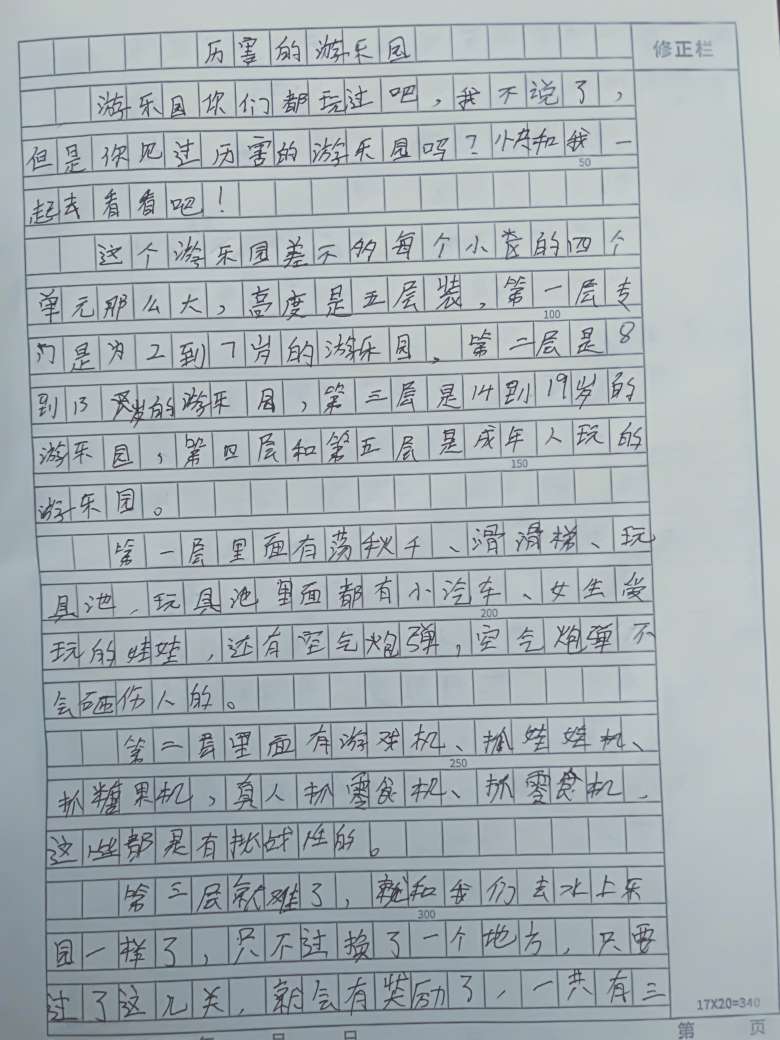 厉害的游乐园
修正栏
游乐园你们都玩过吧，我不说了，
但是你见过厉害的游乐园吗？快和我一
50
起去看看吧！
这个游乐园差不多每个小区的四个
单元那么大，高度是五层装，第一层专
100
门是为2到7岁的游乐园，第二层是8
到13岁的游乐园，第三层是14到19岁的
游乐园，第四层和第五层是成年人玩的
150
游乐园。
第一层里面有荡秋千、滑滑梯、玩
具池，玩具池里面都有小汽车、女生爱
200
玩的娃娃，还有空气炮弹，空气炮弹不
会砸伤人的。
第二层里面有游戏机、抓娃娃机、
250
抓糖果机，真人抓零食机、抓零食机，
这些都是有挑战性的。
第三层就难了，就和我们去水上乐
300
园一样了，只不过换了一个地方，只要
过了这几关，就会有奖励了，一共有三
17X20=340
年 月 日 第 页